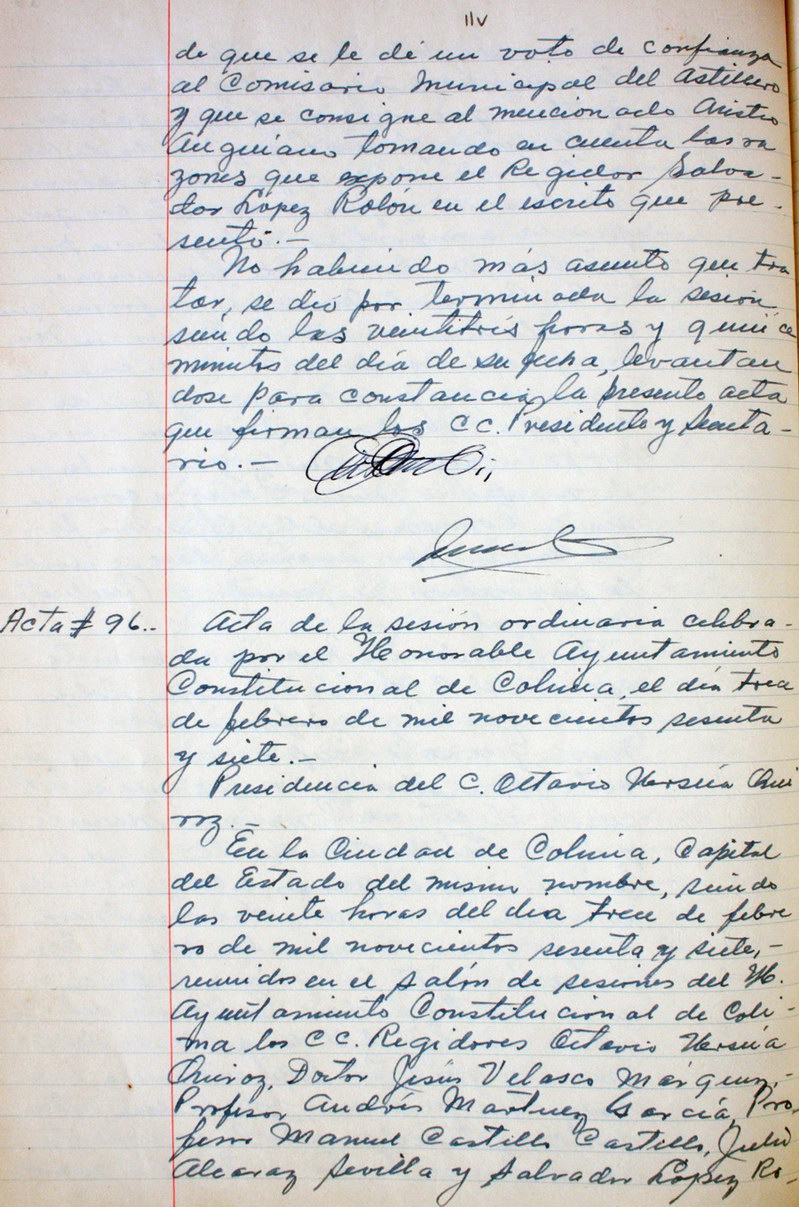 11v
de que se le dé un voto de confianza
al Comisario Municipal del Astillero
y que se consigne al mencionado
Anguiano tomando en cuenta las ra
zones que expone el Regidor Salva-
dor López Rolón en el escrito que pre-
sentó.-
No habiendo más asunto que tra
tar, se dió por terminada la sesión
siendo las veintitrés horas y quince
minutos del día de su fecha, levantan
dose para constancia la presente acta
que firman los CC. Presidente y Secreta-
rio.-
Acta # 96.-
Acta de la sesión ordinaria celebra-
da por el Honorable Ayuntamiento
Constitucional de Colima, el día trece
de febrero de mil novecientos sesenta
y siete.-
Presidencia del C. Octavio Qui
roz.-
En la Ciudad de Colima, Capital
del Estado del mismo nombre, siendo
las veinte horas del dia trece de febre
ro de mil novecientos sesenta y siete,-
reunidos en el salón de sesiones del H.
Ayuntamiento Constitucional de Coli-
ma los CC. Regidores Octavio
Quiroz, Doctor Jesús Velasco Márquez,-
Profesor Andrés Martinez García, Pro-
fesor Manuel Castillo Castillo, Julio
Alcaraz Sevilla y Salvador López Ro-